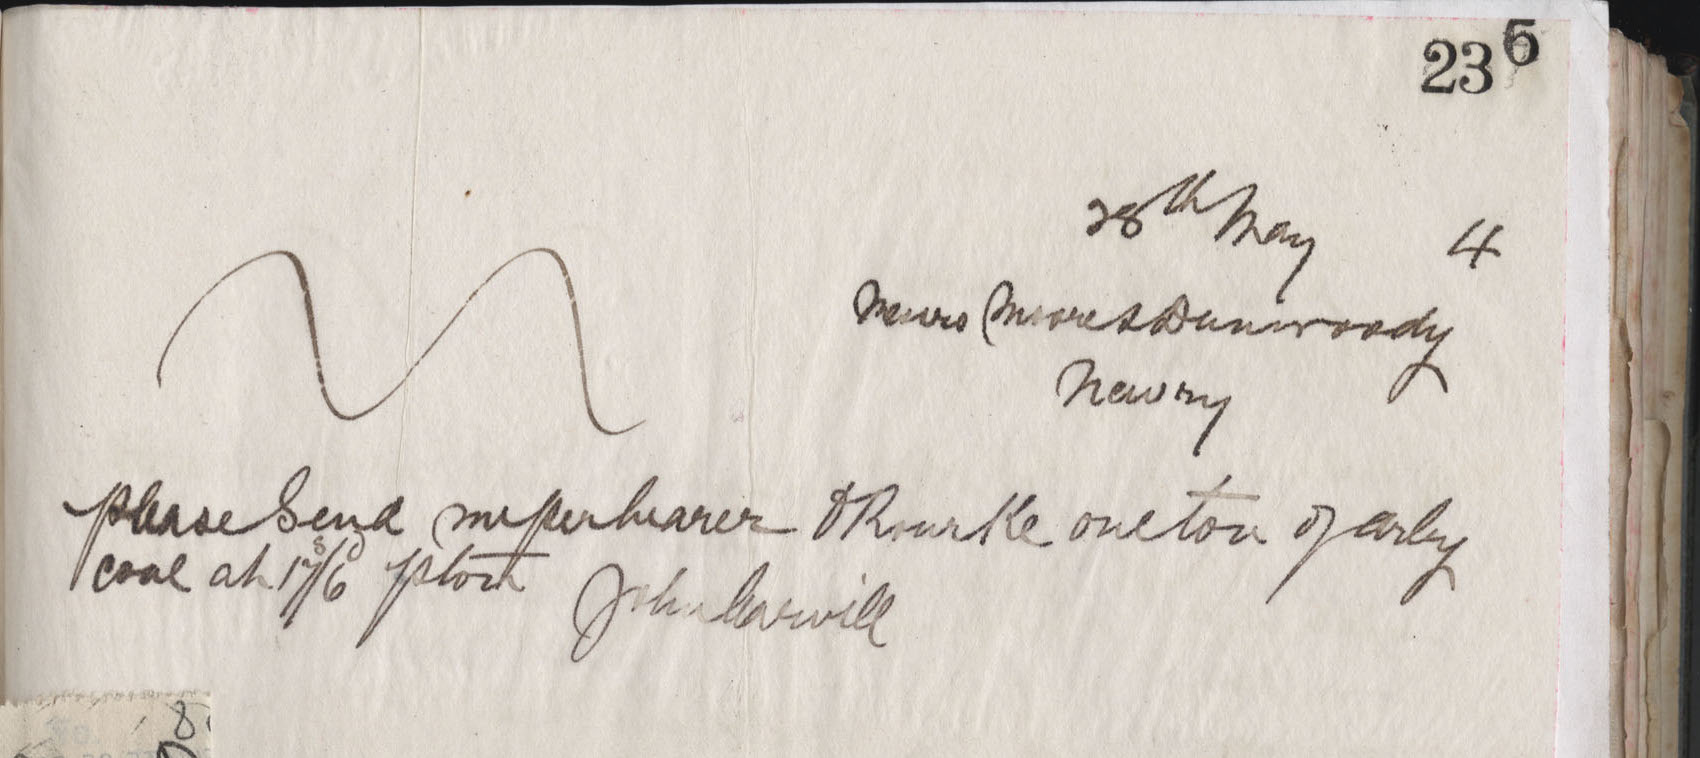 235
28th May 4
Messrs Moore & Dunwoody
Newry
please Send me per bearer O Rourke one ton of arley
coal at 17s/6d p ton John Carvill
8